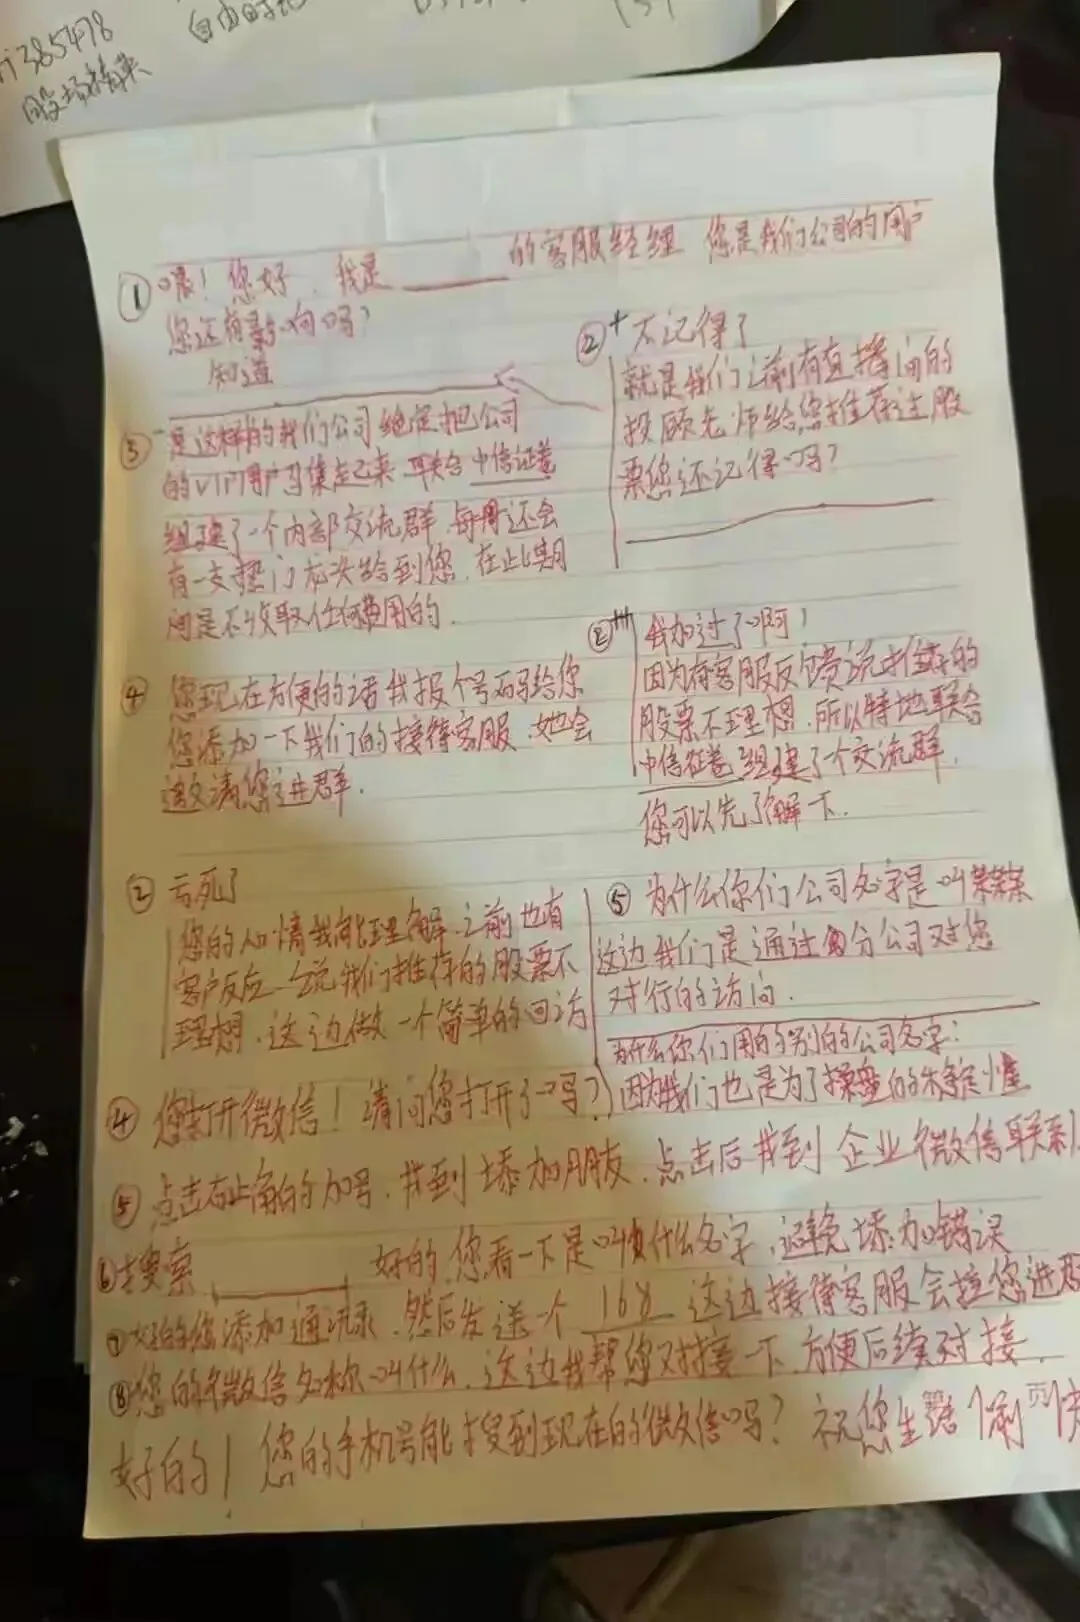 385478
股场精英
自由时代
① 喂！您好，我是______的客服经理 您是我们公司的用户
您还有影响吗？
知道
②+ 不记得了
就是我们之前有直播间的
投顾老师给您推荐过股
票您还记得吗？
③ 是这样的我们公司绝定把公司
的VIP用户召集起来 联合 中信证卷
组建了一个内部交流群 每周还会
有一支热门龙头给到您，在此期
间是不收取任何费用的.
②++ 我加过了啊！
因为有客服反馈说推荐的
股票不理想，所以特地联合
中信证卷 组建了一个交流群，
您可以先了解一下.
④ 您现在方便的话我报个号码给你
您添加一下我们的接待客服，她会
邀请您进群.
② 亏死了
您的心情我能理解，之前也有
客户反应 说我们推荐的股票不
理想，这边做一个简单的回访
⑤ 为什么你们公司名字是叫某某某
这边我们是通过分公司对您
对行的访问.
为什么你们用的别的公司名字：
因为我们也是为了操盘的稳定性
④ 您打开微信！请问您打开了吗？
⑤ 点击右上角的加号，找到添加朋友，点击后找到 企业微信联系
⑥ 去搜索______ 好的，您看一下是叫什么名字，避免添加错误
⑦ 好的您添加通讯录，然后发送一个 168 这边接待客服会拉您进群
⑧ 您的微信名称叫什么，这边我帮您对接一下，方便后续对接.
好的！您的手机号能搜到现在的微信吗？祝您生